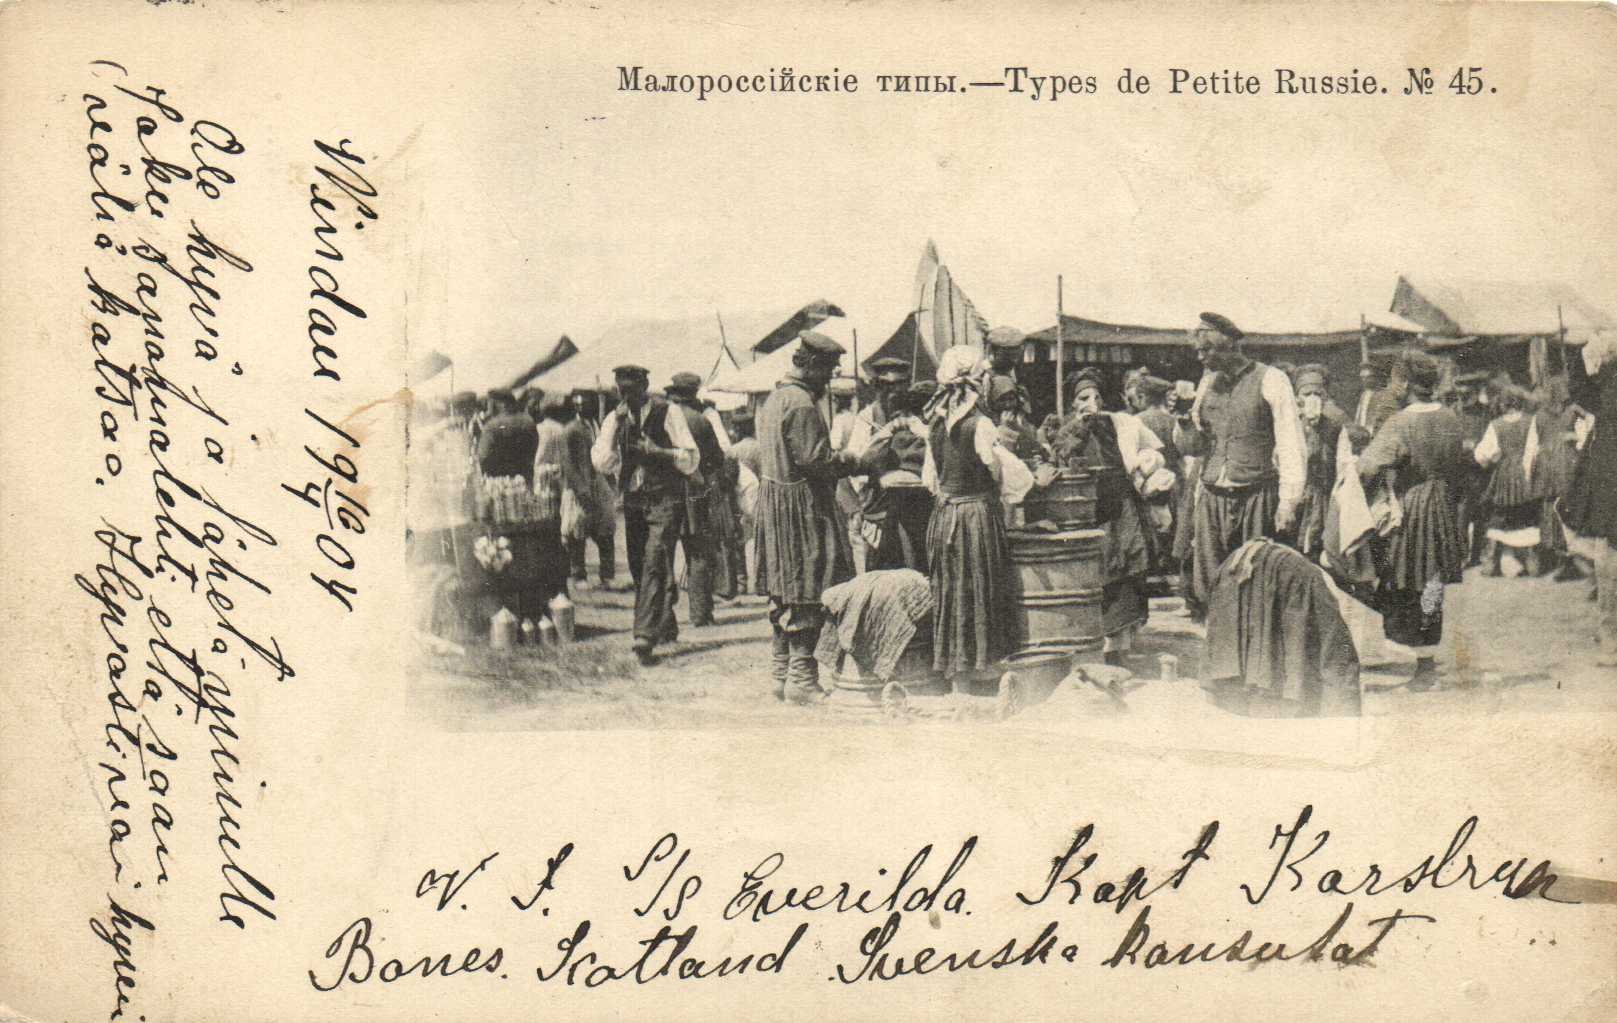 Малороссійскіе типы.—Types de Petite Russie. № 45.
Windau 19 16/4 04
Ole hyvä ja lähetä minulle
joku sanomalehti että saan
vähä katsoa. Hyvästi vai hyvin
V. J. S/S Everilda. Kapt Karström
Bones. Scotland Svenska konsulat